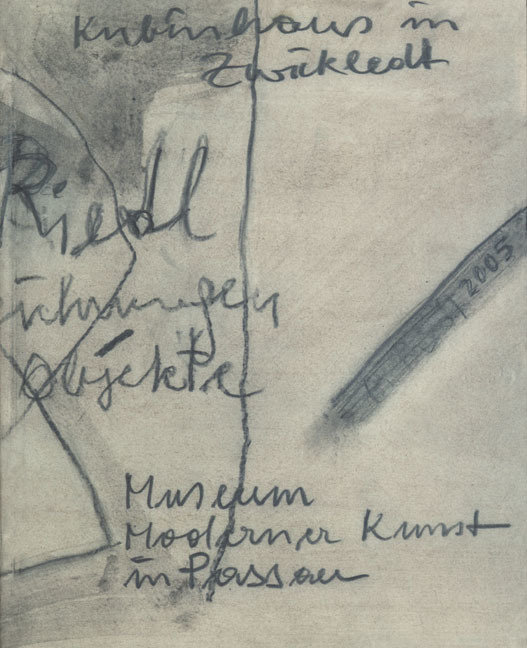 Kubinhaus in
Zwickledt
Riedl
ichnungen
objekte
2005
Museum
Moderner Kunst
in Passau